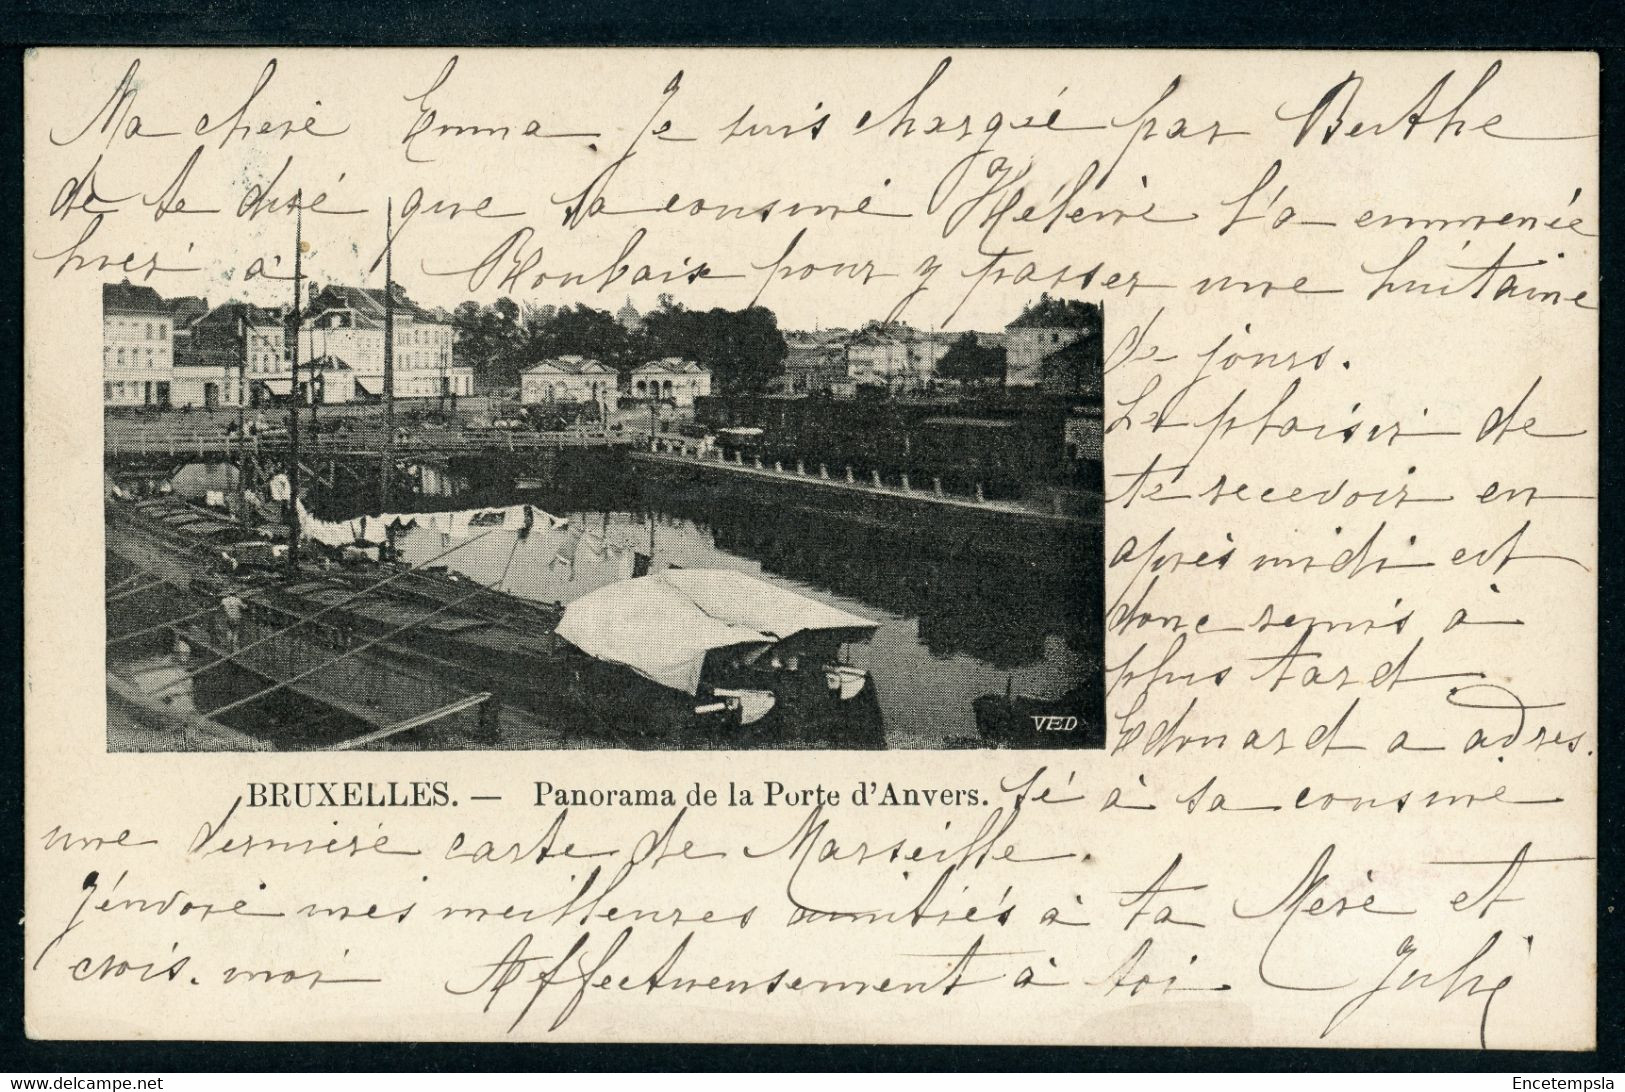 Ma chère Emma. Je suis chargée par Berthe
de te dire que sa cousine Hélène l'a emmenée
hier à Roubaix pour y passer une huitaine
de jours.
Le plaisir de
te recevoir en
après midi est
donc remis à
plus tard.
Edouard a adres.
VED
BRUXELLES. — Panorama de la Porte d'Anvers.
sé à sa cousine
une dernière carte de Marseille.
J'envoie mes meilleures amitiés à ta Mère et
crois. moi Affectueusement à toi. Julie
delcampe.net
Encetempsla